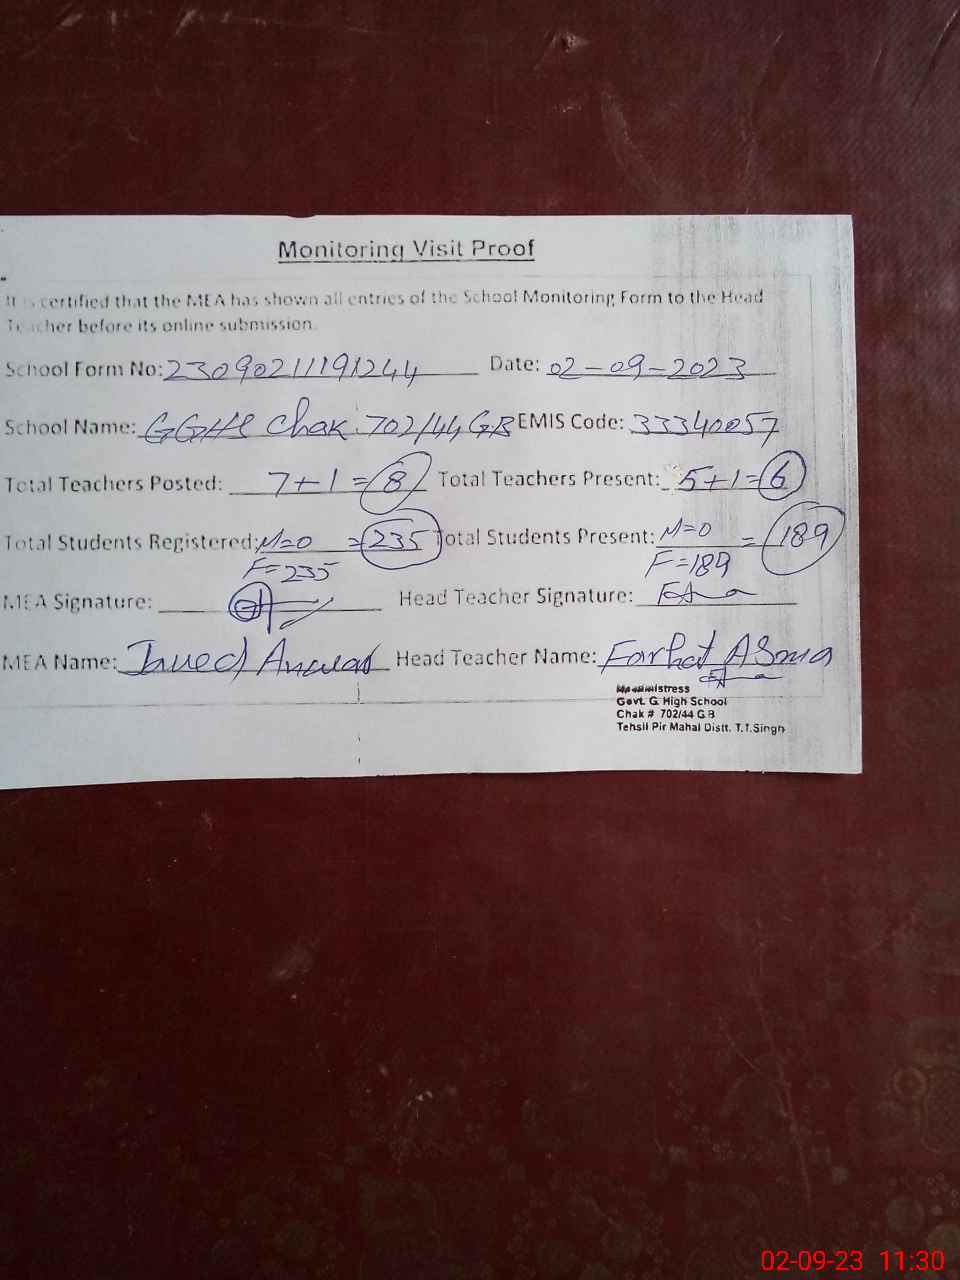 Monitoring Visit Proof
It is certified that the MEA has shown all entries of the School Monitoring Form to the Head
Teacher before its online submission.
School Form No: 23090211191244 Date: 02-09-2023
School Name: GGHS Chak 702/44 GB EMIS Code: 33340057
Total Teachers Posted: 7+1=8 Total Teachers Present: 5+1=6
Total Students Registered: M=0 =235 Total Students Present: M=0 = 189
F=235 F=189
MEA Signature: Head Teacher Signature:
MEA Name: Javed Anwar Head Teacher Name: Farhat Asma
Headmistress
Govt. G. High School
Chak # 702/44 G B
Tehsil Pir Mahal Distt. T.T.Singh
02-09-23 11:30